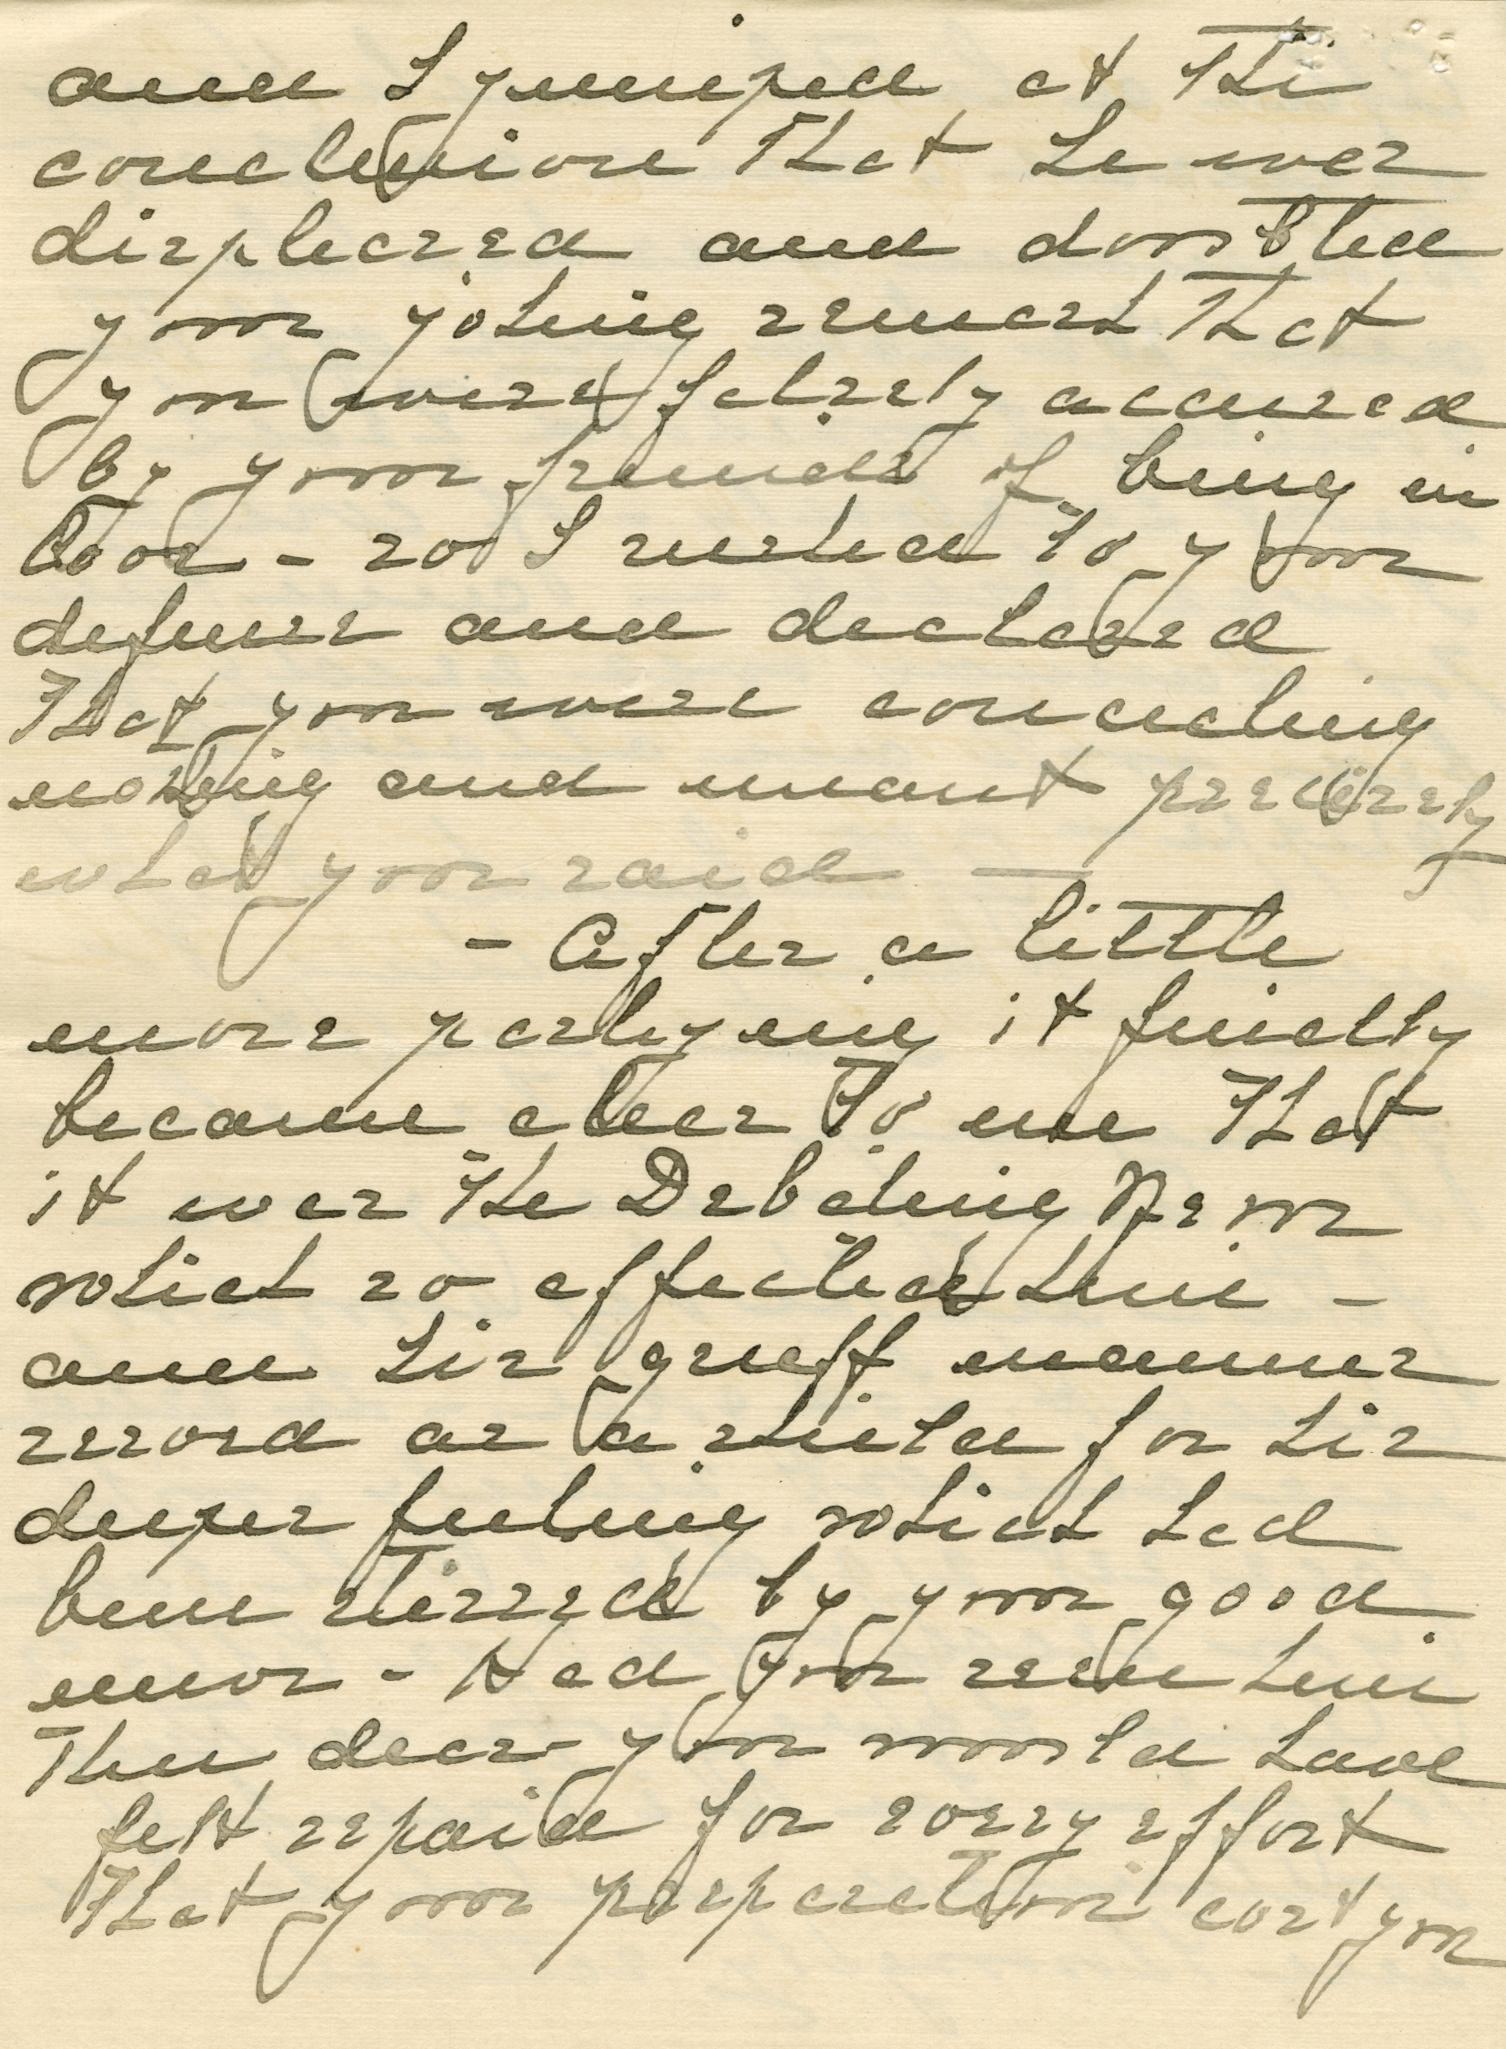 and I jumped at the
conclusion that he was
displeased and doubted
your joking remark that
you were falsely accused
by your friends of being in
love - so I rushed to your
defense and declared
that you were concealing
nothing and meant precisely
what you said —
- After a little
more parlying it finally
became clear to me that
it was the Debating News
which so affected him -
and his gruff manner
served as a shield for his
deeper feeling which had
been stirred by your good
news - Had you seen him
then dear you would have
felt repaid for every effort
that your preparation cost you